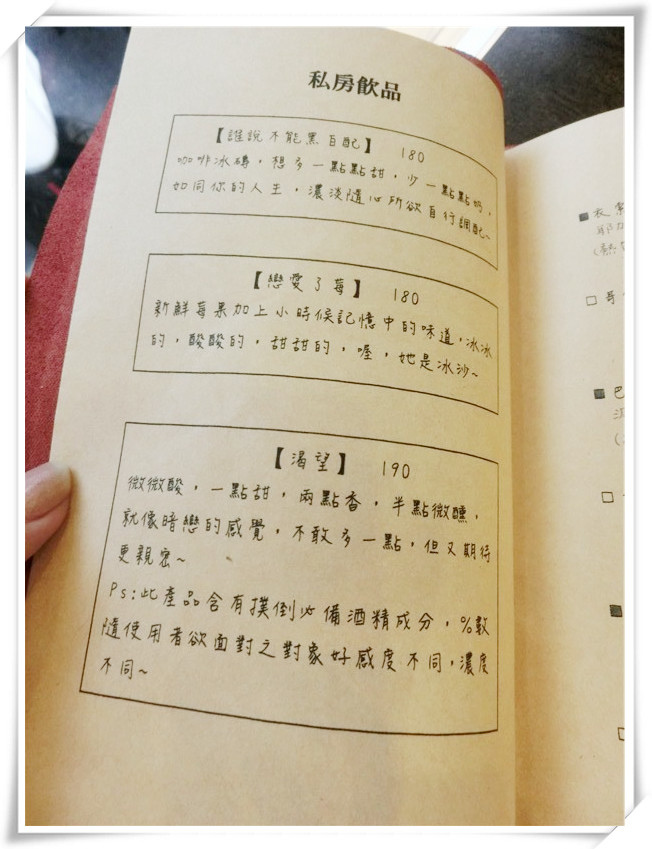 私房飲品
【誰說不能黑白配】 180
咖啡冰磚，想多一點點甜，少一點點奶，
如同你的人生，濃淡隨心所欲自行調配~
【戀愛了莓】 180
新鮮莓果加上小時候記憶中的味道，冰冰
的，酸酸的，甜甜的，喔，她是冰沙~
【渴望】 190
微微酸，一點甜，兩點香，半點微醺，
就像暗戀的感覺，不敢多一點，但又期待
更親密~
Ps:此產品含有撲倒必備酒精成分，%數
隨使用者欲面對之對象好感度不同，濃度
不同~
■
□ 哥
■ 巴
□